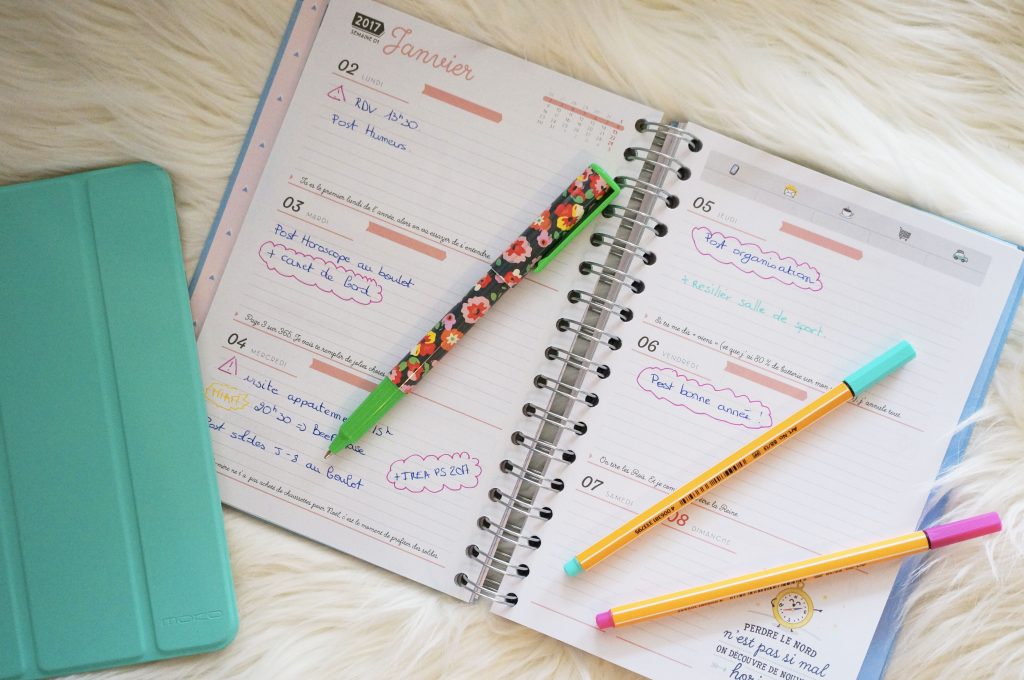 2017
SEMAINE 01
Janvier
02 LUNDI
RDV 13h30
Post Humeurs
Tu es le premier lundi de l'année, alors on va essayer de s'entendre.
03 MARDI
Post Horoscope au boulot
+ carnet de bord
Page 3 sur 365. Je vais te remplir de jolies choses
04 MERCREDI
visite appartement 15h
20h30 => Beer
Post soldes J-8 au boulot
+ IREA PS 2017
de chaussettes pour Noël, c'est le moment de profiter des soldes.
05 JEUDI
Post organisation
+ Resilier salle de sport
Si tu me dis « viens » (et que j'ai 80 % de batterie sur mon j'annule tout.
06 VENDREDI
Post bonne année !
On tire les Rois. Et je être la Reine.
07 SAMEDI
08 DIMANCHE
25
PERDRE LE NORD
n'est pas si mal
ON DÉCOUVRE DE
MOKO